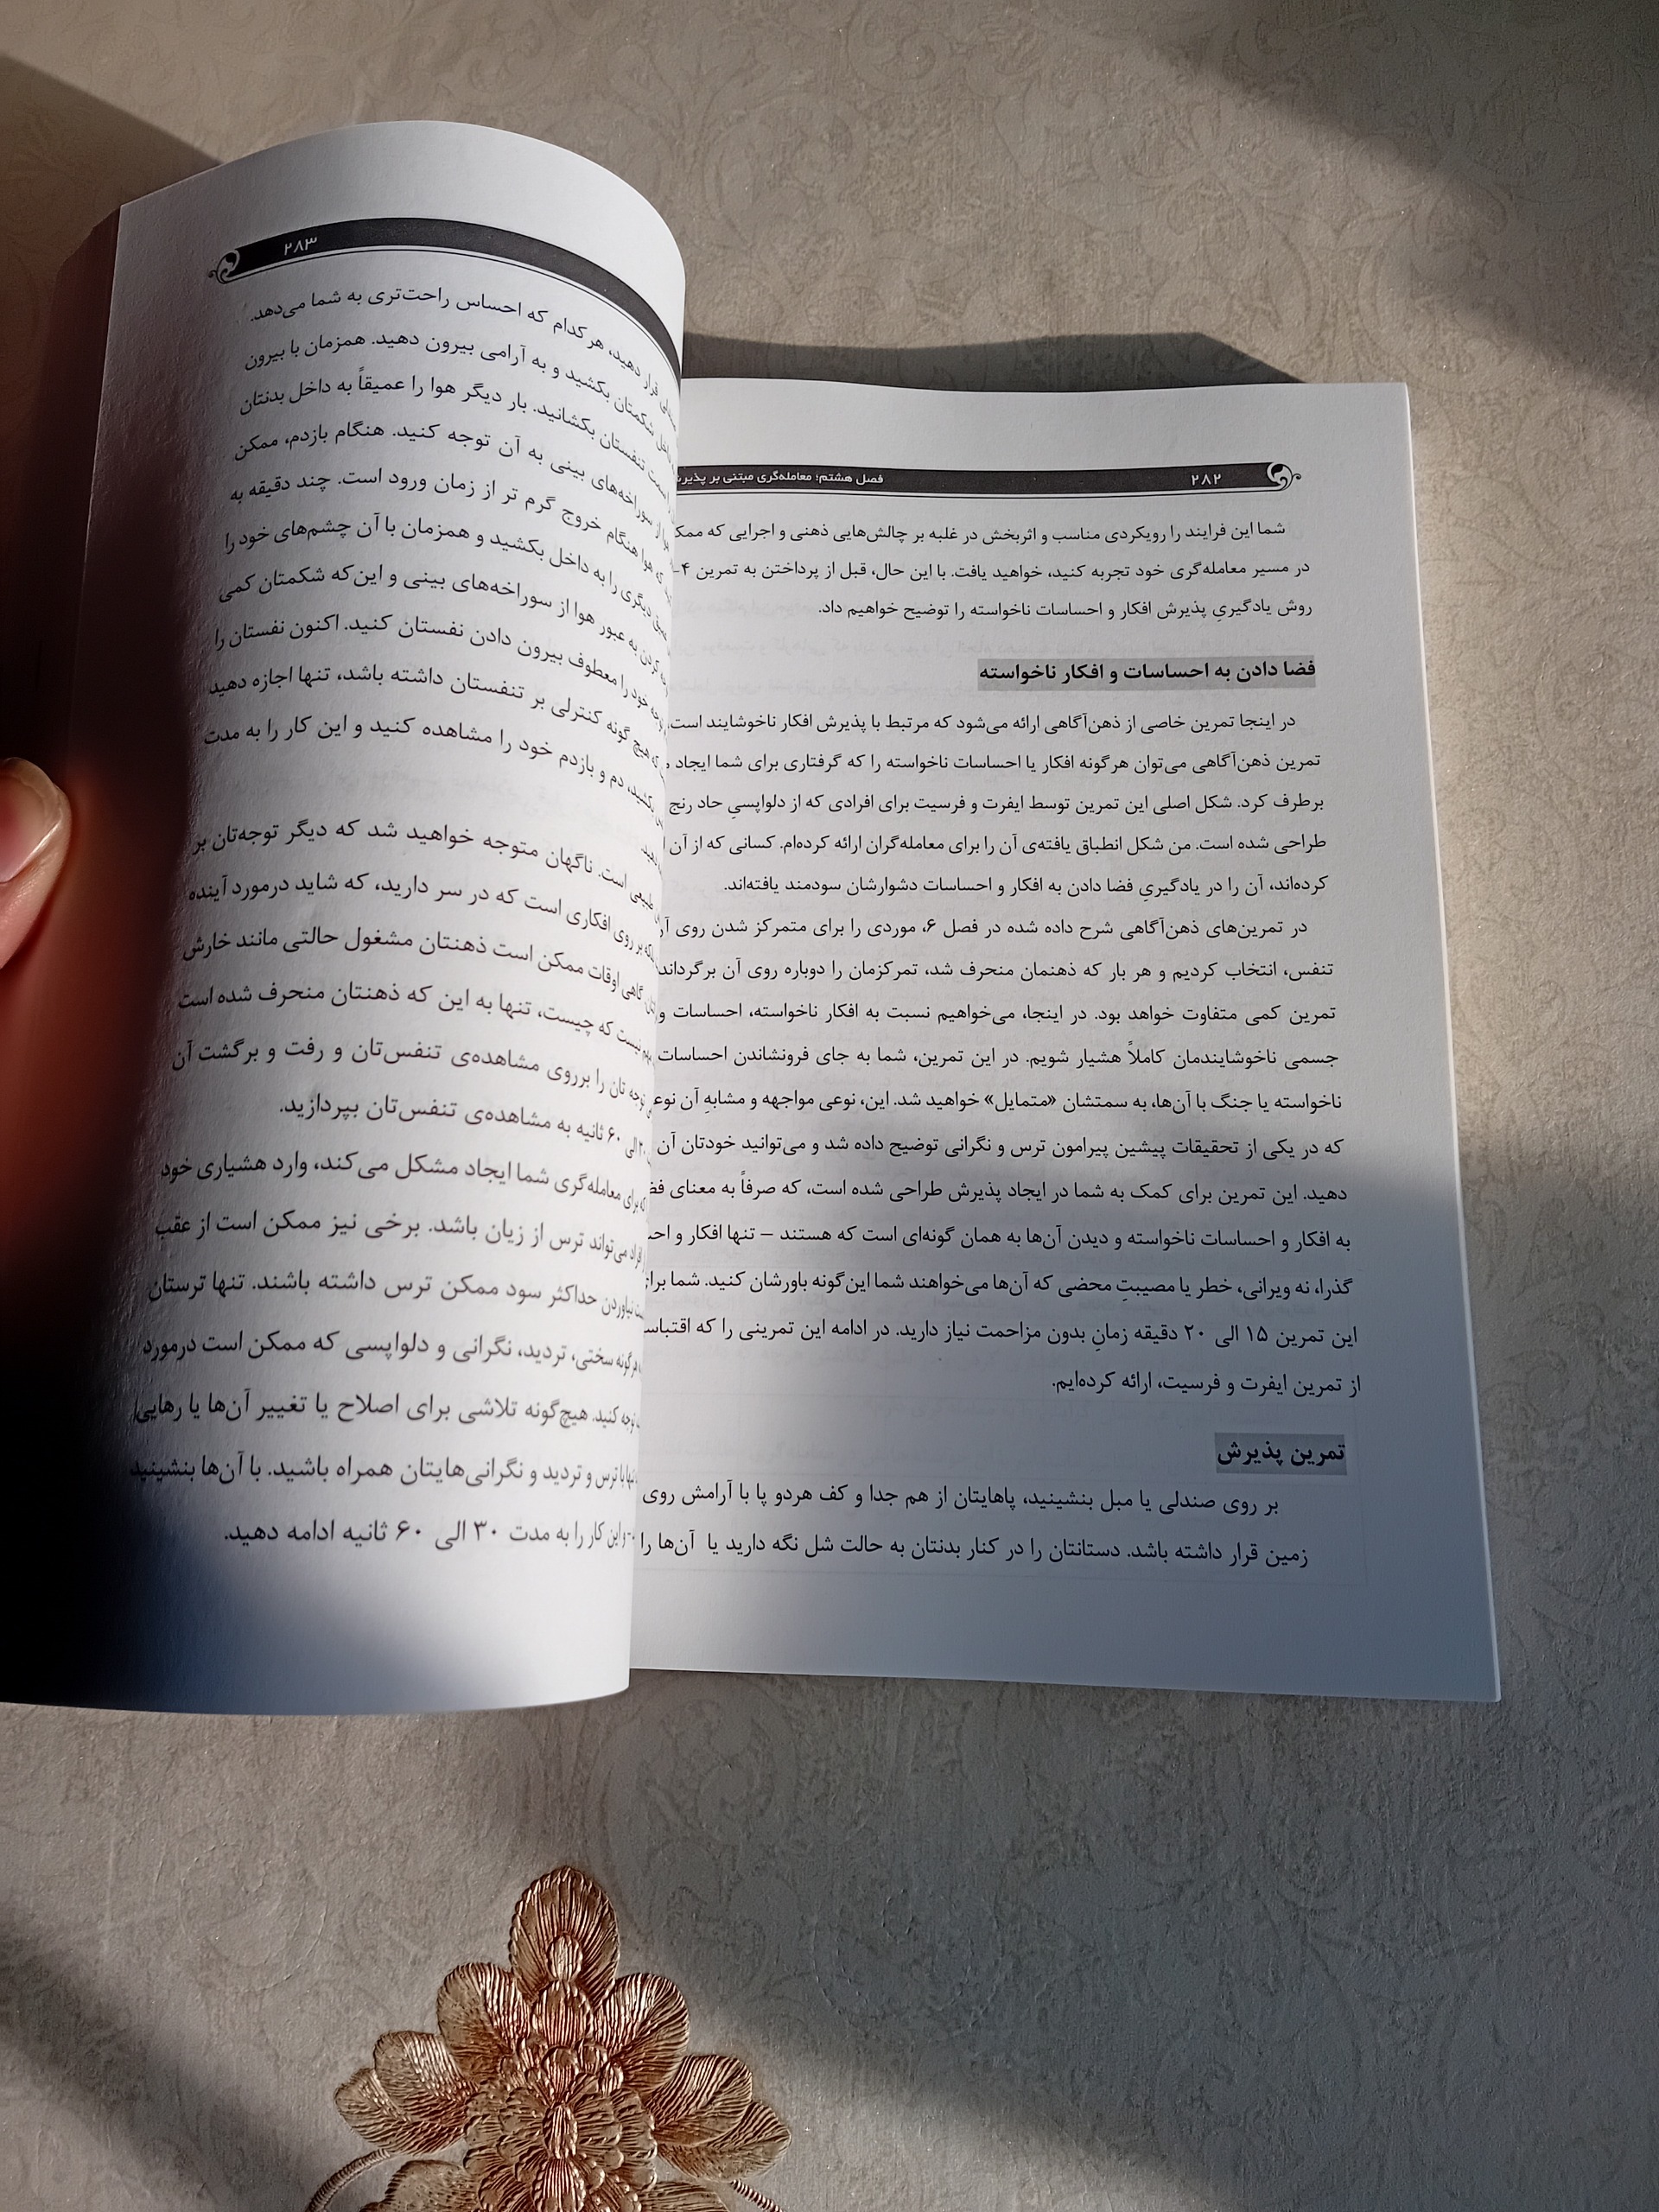 ۲۸۲
فصل هشتم؛ معامله‌گری مبتنی بر پذیرش
شما این فرایند را رویکردی مناسب و اثربخش در غلبه بر چالش‌هایی ذهنی و اجرایی که
در مسیر معامله‌گری خود تجربه کنید، خواهید یافت. با این حال، قبل از پرداختن به تمرین ۴-
روش یادگیریِ پذیرش افکار و احساسات ناخواسته را توضیح خواهیم داد.
فضا دادن به احساسات و افکار ناخواسته
در اینجا تمرین خاصی از ذهن‌آگاهی ارائه می‌شود که مرتبط با پذیرش افکار ناخوشایند است.
تمرین ذهن‌آگاهی می‌توان هرگونه افکار یا احساسات ناخواسته را که گرفتاری برای شما ایجاد
برطرف کرد. شکل اصلی این تمرین توسط ایفرت و فرسیت برای افرادی که از دلواپسیِ حاد رنج
طراحی شده است. من شکل انطباق یافته‌ی آن را برای معامله‌گران ارائه کرده‌ام. کسانی که از آن
کرده‌اند، آن را در یادگیریِ فضا دادن به افکار و احساسات دشوارشان سودمند یافته‌اند.
در تمرین‌های ذهن‌آگاهی شرح داده شده در فصل ۶، موردی را برای متمرکز شدن روی
تنفس، انتخاب کردیم و هر بار که ذهنمان منحرف شد، تمرکزمان را دوباره روی آن
تمرین کمی متفاوت خواهد بود. در اینجا، می‌خواهیم نسبت به افکار ناخواسته، احساسات و
جسمی ناخوشایندمان کاملاً هشیار شویم. در این تمرین، شما به جای فرونشاندن احساسات
ناخواسته یا جنگ با آن‌ها، به سمتشان «متمایل» خواهید شد. این، نوعی مواجهه و مشابهِ آن
که در یکی از تحقیقات پیشین پیرامون ترس و نگرانی توضیح داده شد و می‌توانید خودتان آن
دهید. این تمرین برای کمک به شما در ایجاد پذیرش طراحی شده است، که صرفاً به معنای
به افکار و احساسات ناخواسته و دیدن آن‌ها به همان گونه‌ای است که هستند – تنها افکار و
گذرا، نه ویرانی، خطر یا مصیبتِ محضی که آن‌ها می‌خواهند شما این‌گونه باورشان کنید. شما
این تمرین ۱۵ الی ۲۰ دقیقه زمانِ بدون مزاحمت نیاز دارید. در ادامه این تمرینی را که
از تمرین ایفرت و فرسیت، ارائه کرده‌ایم.
تمرین پذیرش
بر روی صندلی یا مبل بنشینید، پاهایتان از هم جدا و کف هردو پا با آرامش روی
زمین قرار داشته باشد. دستانتان را در کنار بدنتان به حالت شل نگه دارید یا آن‌ها را
۲۸۳
قرار دهید، هرکدام که احساس راحت‌تری به شما می‌دهد.
شکمتان بکشید و به آرامی بیرون دهید. همزمان با بیرون
تنفستان بکشانید. بار دیگر هوا را عمیقاً به داخل بدنتان
سوراخ‌های بینی به آن توجه کنید. هنگام بازدم، ممکن
هوا هنگام خروج گرم تر از زمان ورود است. چند دقیقه به
دیگری را به داخل بکشید و همزمان با آن چشم‌های خود را
کردن به عبور هوا از سوراخ‌های بینی و این‌که شکمتان کمی
خود را معطوف بیرون دادن نفستان کنید. اکنون نفستان را
هیچ گونه کنترلی بر تنفستان داشته باشد، تنها اجازه دهید
بکشید، دم و بازدم خود را مشاهده کنید و این کار را به مدت
طبیعی است. ناگهان متوجه خواهید شد که دیگر توجه‌تان بر
بر روی افکاری است که در سر دارید، که شاید درمورد آینده
گاهی اوقات ممکن است ذهنتان مشغول حالتی مانند خارش
نیست که چیست، تنها به این که ذهنتان منحرف شده است
توجه تان را برروی مشاهده‌ی تنفس‌تان و رفت و برگشت آن
الی ۶۰ ثانیه به مشاهده‌ی تنفس‌تان بپردازید.
برای معامله‌گری شما ایجاد مشکل می‌کند، وارد هشیاری خود
افراد می‌تواند ترس از زیان باشد. برخی نیز ممکن است از عقب
نیاوردن حداکثر سود ممکن ترس داشته باشند. تنها ترستان
هرگونه سختی، تردید، نگرانی و دلواپسی که ممکن است درمورد
توجه کنید. هیچ‌گونه تلاشی برای اصلاح یا تغییر آن‌ها یا رهایی
تنها با ترس و تردید و نگرانی‌هایتان همراه باشید. با آن‌ها بنشینید
و این کار را به مدت ۳۰ الی ۶۰ ثانیه ادامه دهید.